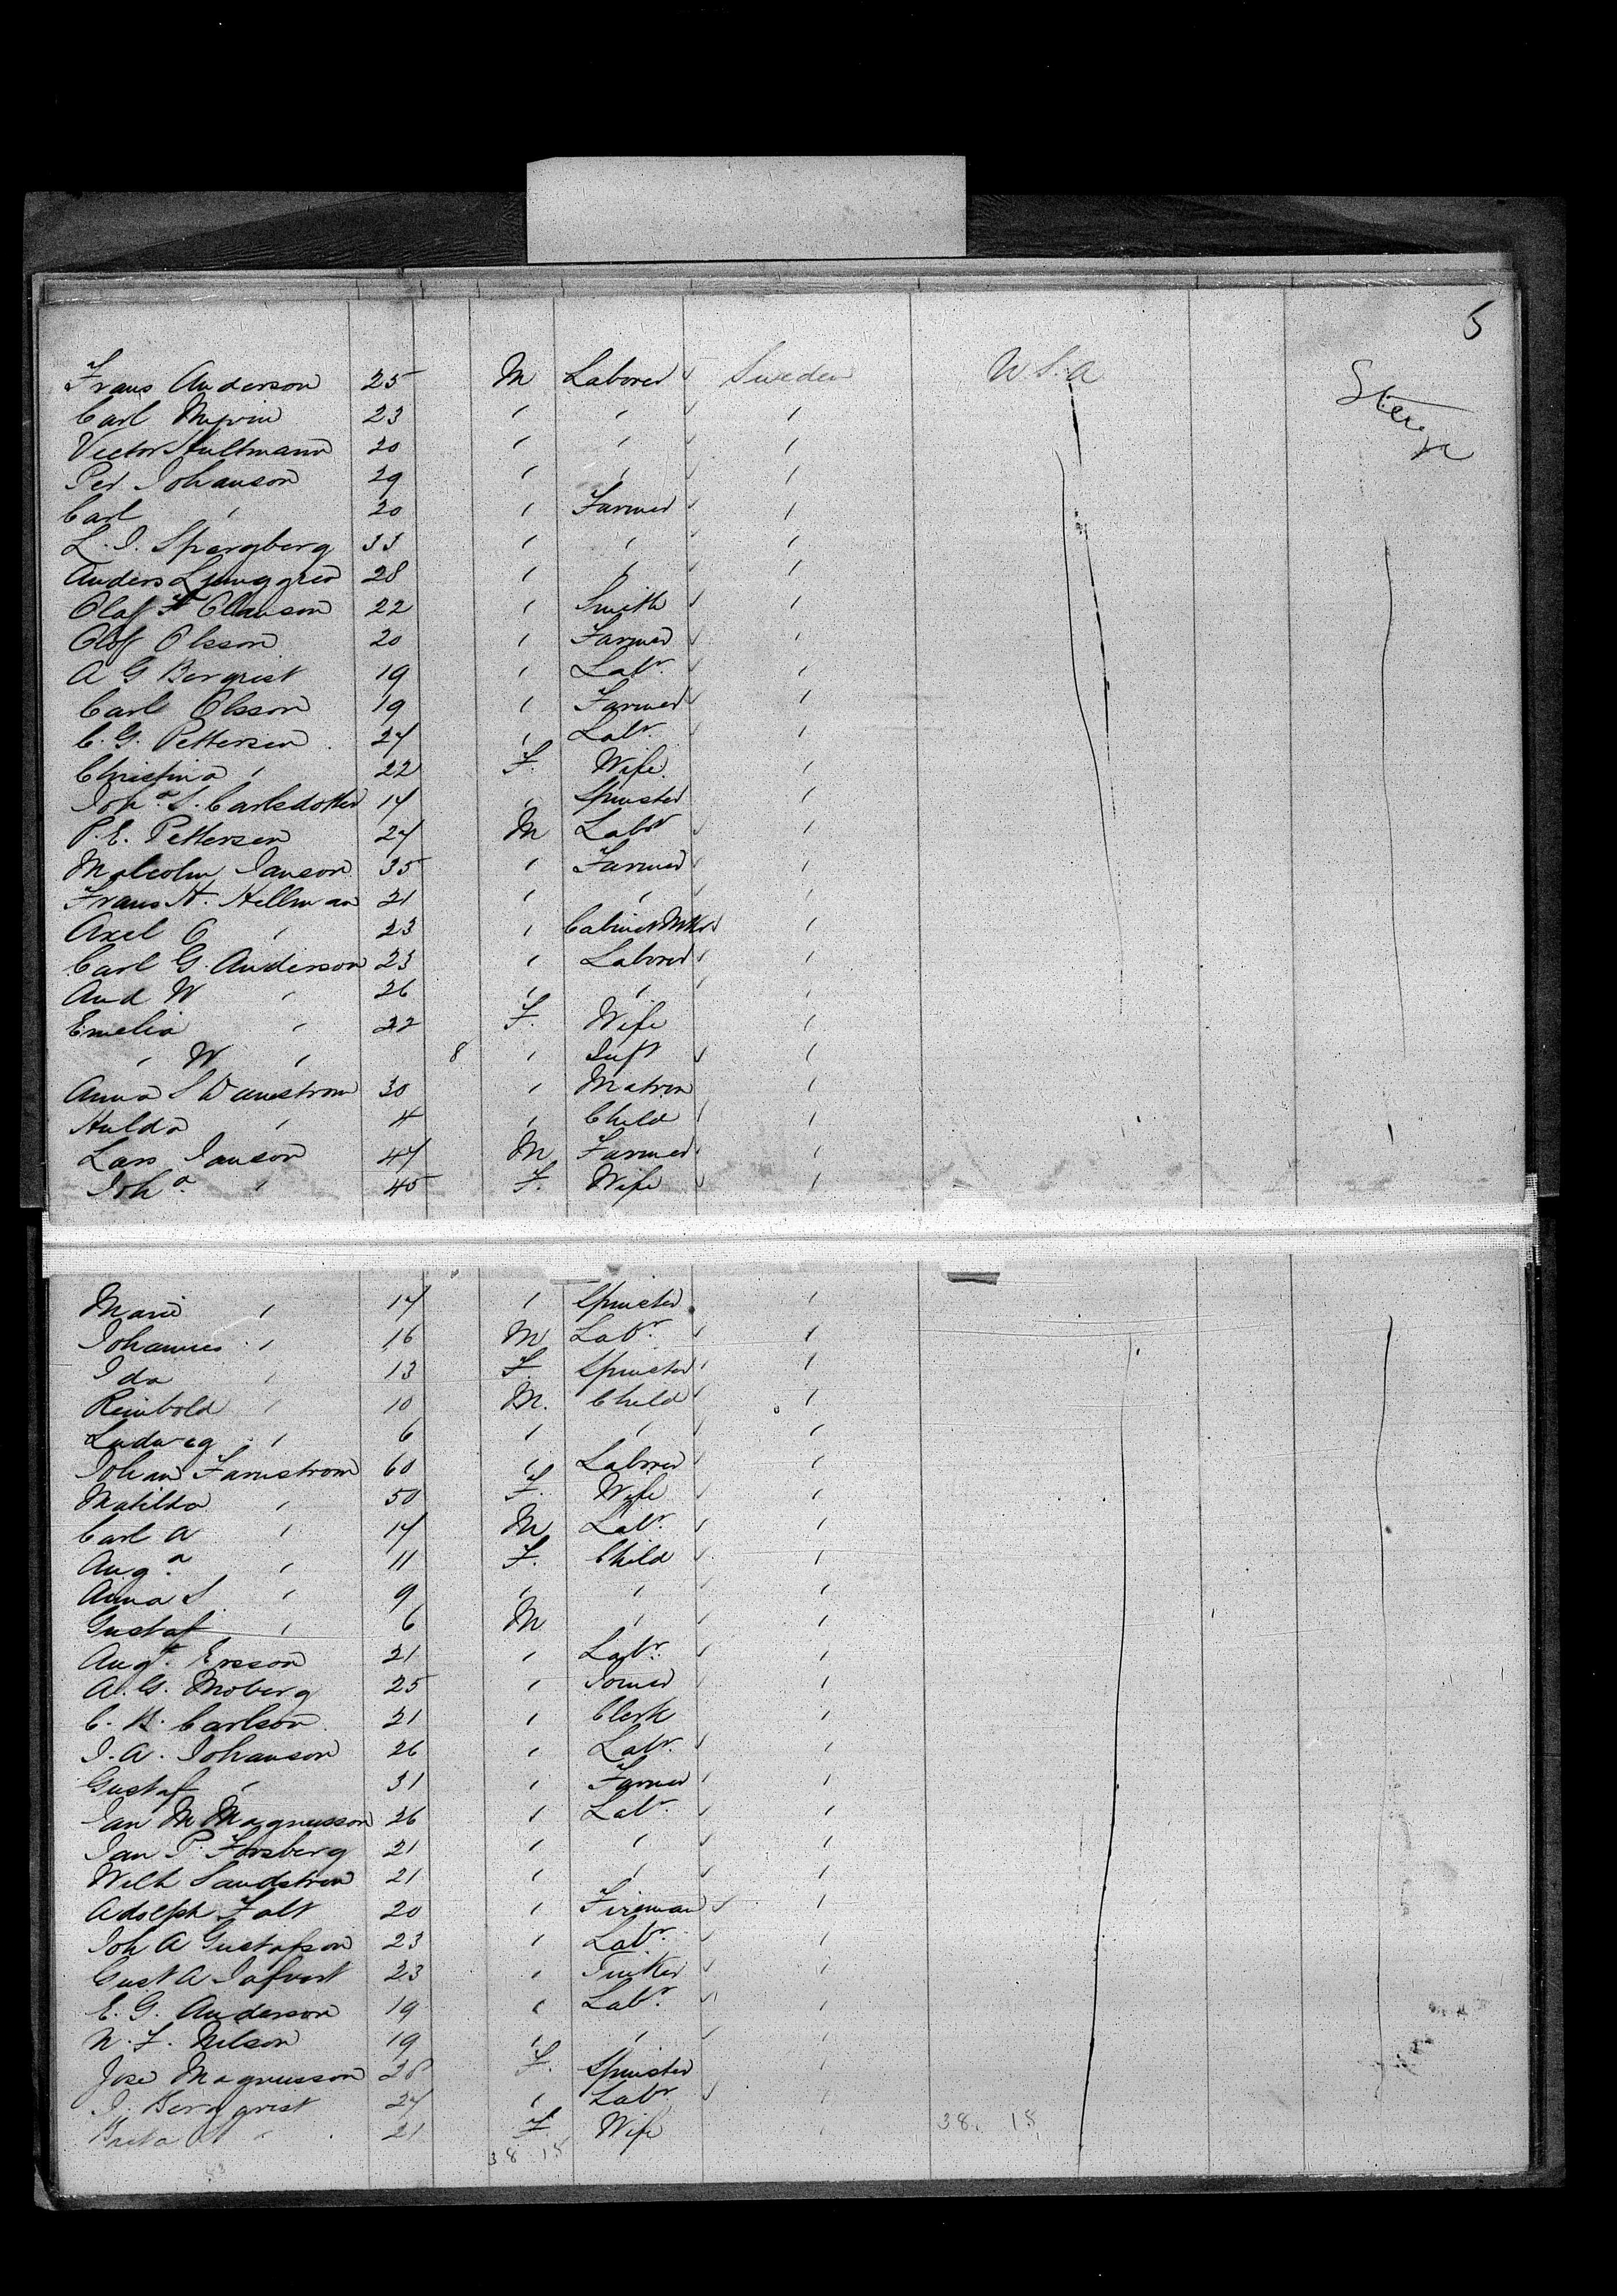 5
Frans Anderson 25 M Laborer Sweden U S. A
Steerge
Carl 23 " " "
Victor Hultmann 20 " " "
Per Johanson 29 " " "
Carl " 20 " Farmer "
L. J. Spargberg 33 " " "
Anders Ljunggren 28 " " "
Olaf F Clauson 22 " Smith "
Olof Olsson 20 " Farmer "
A G Berqvist 19 " Labr "
Carl Olsson 19 " Farmer "
C. G. Pettersen 27 " Labr "
Christina " 22 F. Wife "
Joha. S. Carlsdotter 17 " Spinster "
P. E. Pettersen 27 M Labr "
Malcolm Janson 35 " Farmer "
Frans A. Hellman 21 " " "
Axel O " 23 " Cabinet Mkr "
Carl G. Anderson 23 " Laborer "
And W " 26 " " "
Emelia " 22 F. Wife "
" W " 8 " Inft "
Anna S 30 " Matron "
Hulda " 4 " Child "
Lars Janson 47 M Farmer "
Joha. " 45 F. Wife "
Marie " 17 " Spinster "
Johannes " 16 M Labr. "
Ida " 13 F. Spinster "
Reinhold " 10 M. Child "
Ludwig " 6 " " "
Johan Farnstrom 60 " Laborer "
Matilda " 50 F. Wife "
Carl A " 17 M Labr. "
Auga. " 11 F. Child "
Anna S. " 9 " " "
Gustaf " 6 M " "
Augt. Ersson 21 " Labr. "
A. G. Moberg 25 " Joiner "
C. B. Carlson 21 " Clerk "
J. A. Johanson 26 " Labr. "
Gustaf " 31 " Farmer "
Jan M Magnusson 26 " Labr. "
Jan P. Forsberg 21 " " "
Wilh Sandstrom 21 " " "
Adolph Falt 20 " Fireman "
Joh A Gustafson 23 " Labr. "
Gust A 23 " "
E. G. Anderson 19 " Labr. "
N. F. Nelson 19 " " "
Jose Magnusson 28 F. Spinster "
J. Bergqvist 27 " Labr "
Brita " 21 F. Wife "
38. 15
38 15